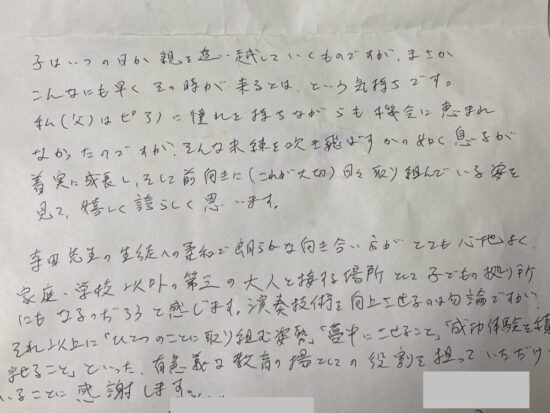 子はいつの日か親を追い越していくものですが、まさか
こんなにも早くその時が来るとは、という気持ちです。
私(父)はピアノに憧れを持ちながらも機会に恵まれ
なかったのですが、そんな未練を吹き飛ばすかの如く息子が
着実に成長し、そして前向きに(これが大切)日々取り組んでいる姿を
見て、嬉しく誇らしく思います。
寺田先生の生徒への柔和で朗らかな向き合い方がとても心地よく、
家庭・学校以外の第三の大人と接する場所として子どもの拠り所
にもなるのだろうと感じます。演奏技術を向上させるのは勿論ですが、
それ以上に「ひとつのことに取り組む姿勢」「夢中にさせること」「成功体験を積
ませること」といった、有意義な教育の場としての役割を担っていただけ
いることに感謝します。...